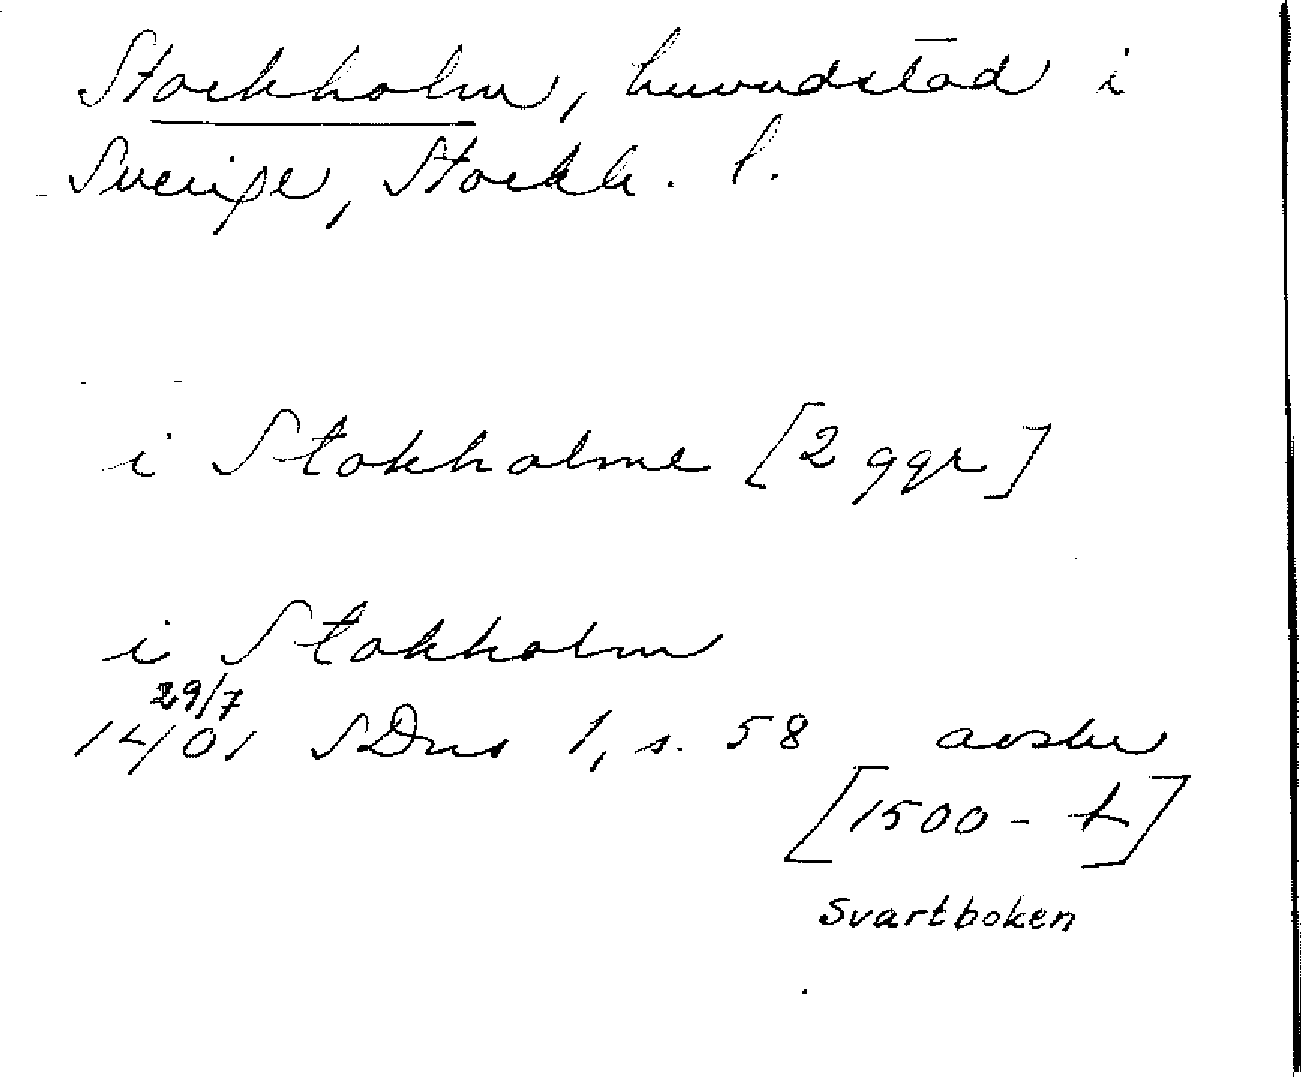 Stockholm, huvudstad i
Sverige, Stockh. l.
i Stokholme [2 ggr]
i Stokholm
29/7
1401 SDns 1, s. 58 avskr
[1500-t]
Svartboken